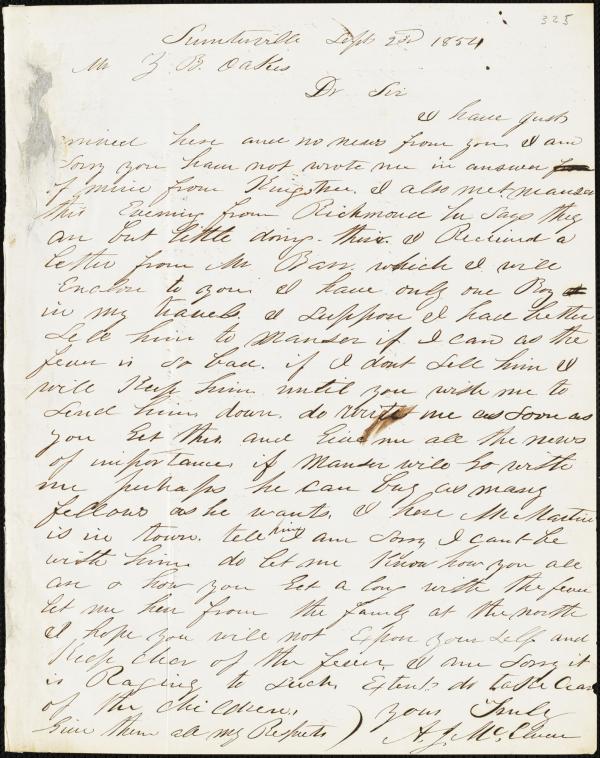 325
Sumterville Sept 2nd 1854
Mr Z B. Oakes
Dr Sir
I have just
rived here and no news from you I am
Sorry you have not wrote me in answer
of mine from Kingstree. I also met Manser
this Evening from Richmond he Says they
are but little doing. there. I Received a
letter from Mr Barr, which I will
Enclose to you. I have only one Boy
in my travels I Suppose I had better
Sell him to Manser if I can as the
fever is so bad. if I dont Sell him I
will Keep him until you wish me to
Send him down. do write me as Soon as
you Get this and Give me all the news
of importance, if Manser will Go with
me perhaps he can buy as many
fellows as he wants. I hear Mr Martin
is in town. tell him I am Sorry I cant be
with him. do let me Know how you all
are & how you Get a long with the fever
let me hear from the family at the north
I hope you will not Expose your Self and
Keep clear of the fever, I me Sorry it
is Raging to Such Extent. do take Care
of the Children,
Give them all my Respects ) yours Truly
A. J. McElveen